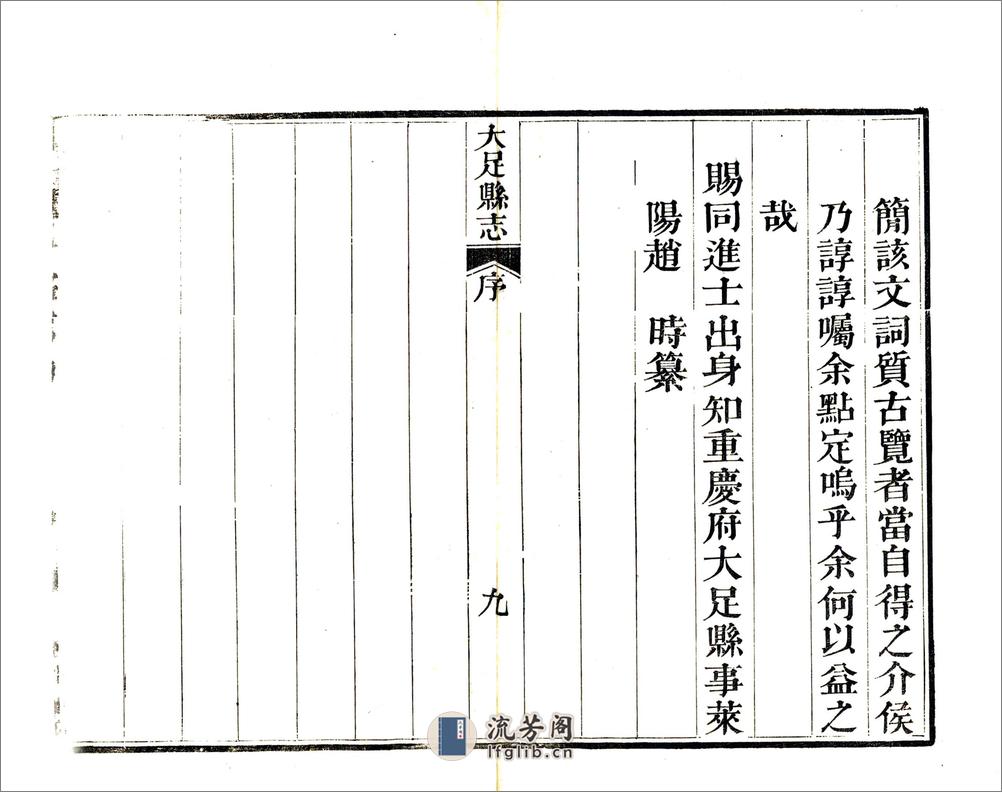 簡該文詞質古覽者當自得之介侯
乃諄諄囑余點定嗚乎余何以益之
哉
賜同進士出身知重慶府大足縣事萊
陽趙　時纂
大足縣志　序　九
流芳阁
lfglib.cn